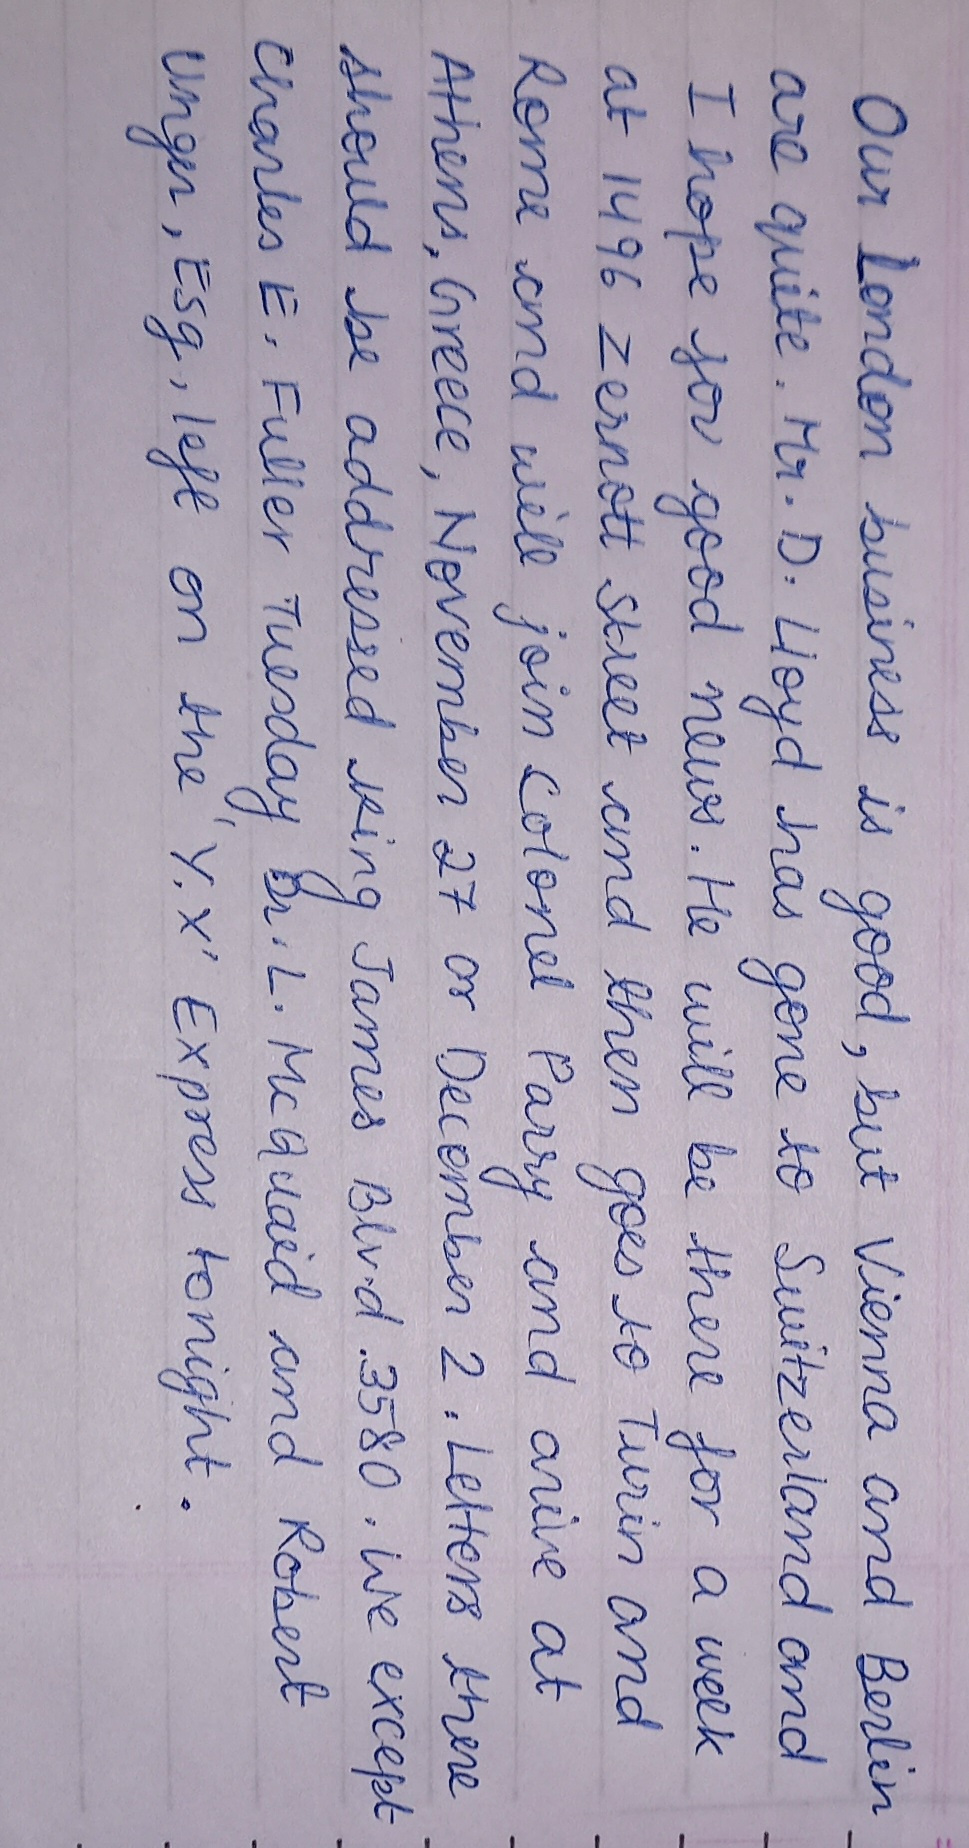 Our London business is good, but Vienna and Berlin
are quite. Mr. D. Lloyd has gone to Switzerland and
I hope for good news. He will be there for a week
at 1496 Zernott street and then goes to Turin and
Rome and will join Colonel Parry and arive at
Athens, Greece, November 27 or December 2. Letters there
should be addressed king James Blvd. 3580. We except
Charles E. Fuller Tuesday Dr. L. McQuaid and Robert
Unger, Esq, left on the 'Y.X' Express tonight.